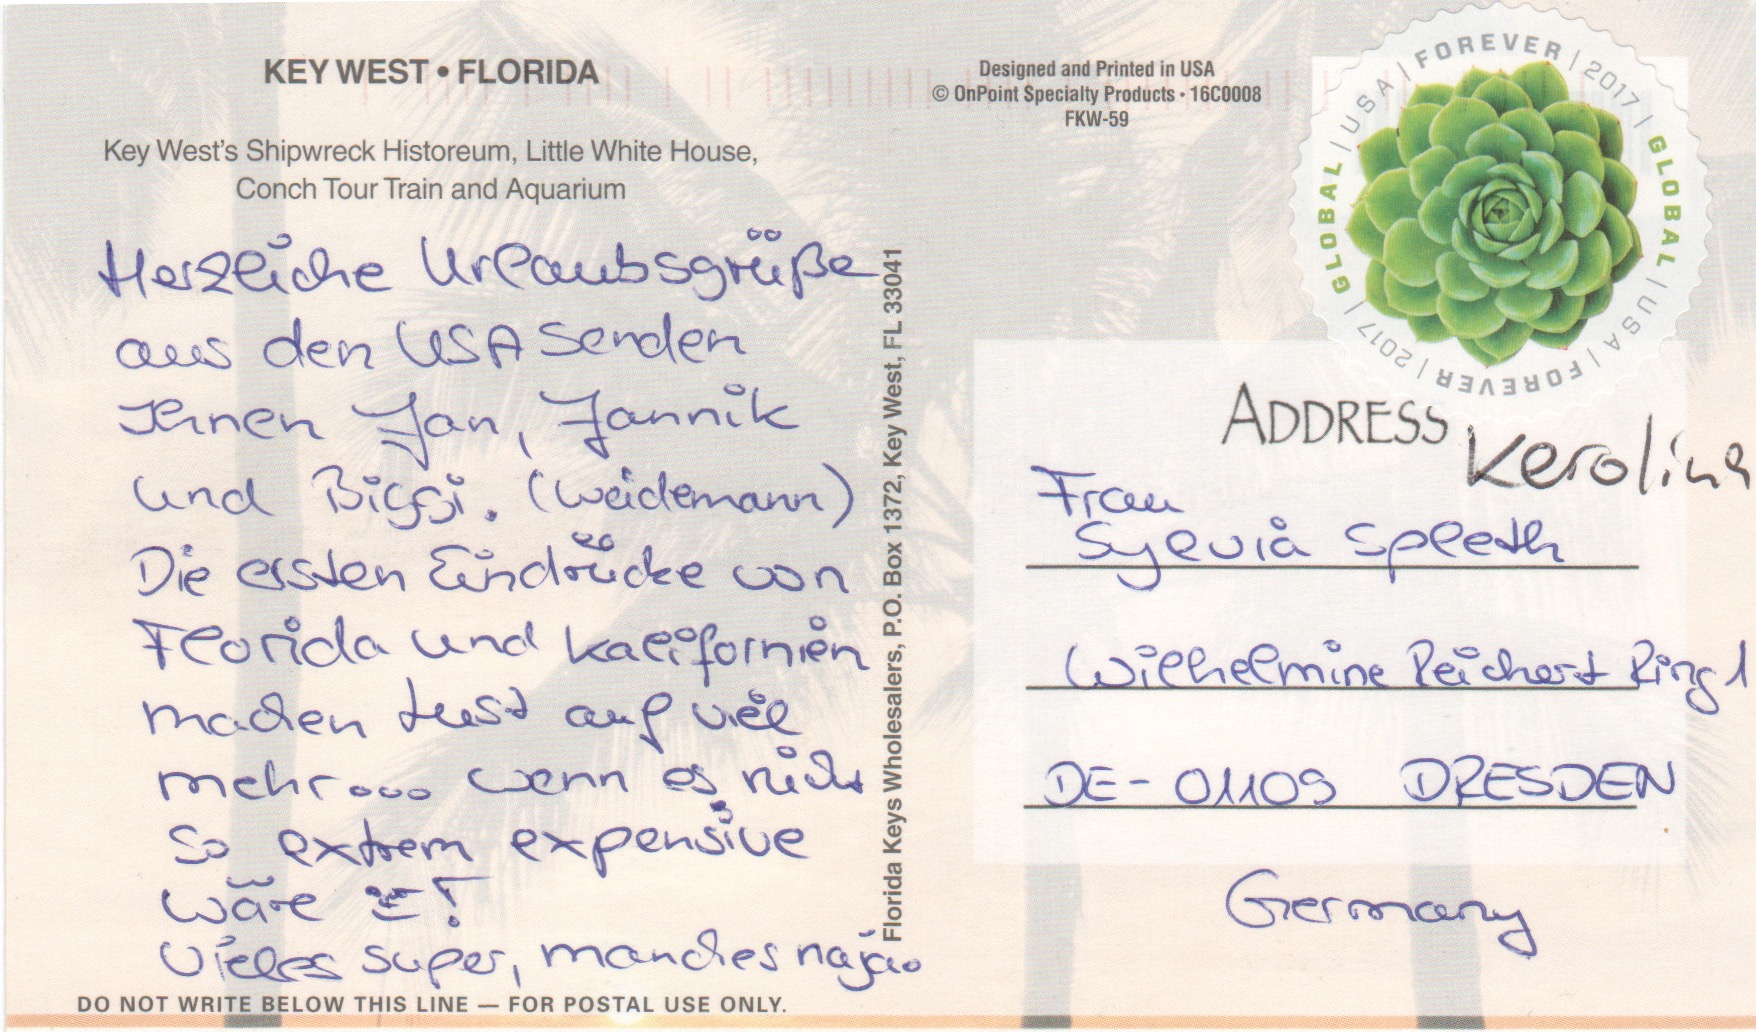 KEY WEST • FLORIDA
Key West's Shipwreck Historeum, Little White House,
Conch Tour Train and Aquarium
Herzliche Urlaubsgrüße
aus den USA senden
Ihnen Jan, Jannik
und Biggi. (Weidemann)
Die ersten Eindrücke von
Florida und Kalifornien
machen Lust auf viel
mehr... wenn es nicht
so extrem expensive
wäre !
Vieles super, manches naja.
DO NOT WRITE BELOW THIS LINE — FOR POSTAL USE ONLY.
Florida Keys Wholesalers, P.O. Box 1372, Key West, FL 33041
Designed and Printed in USA
© OnPoint Specialty Products • 16C0008
FKW-59
GLOBAL | USA | FOREVER | 2017 | GLOBAL | USA | FOREVER | 2017 |
ADDRESS
Kerolina
Frau
Sylvia Spleeth
Wilhelmine Reichert Ring 1
DE - 01109 DRESDEN
Germany